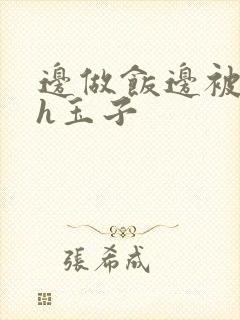 邊做飯邊被
h玉子
張希成